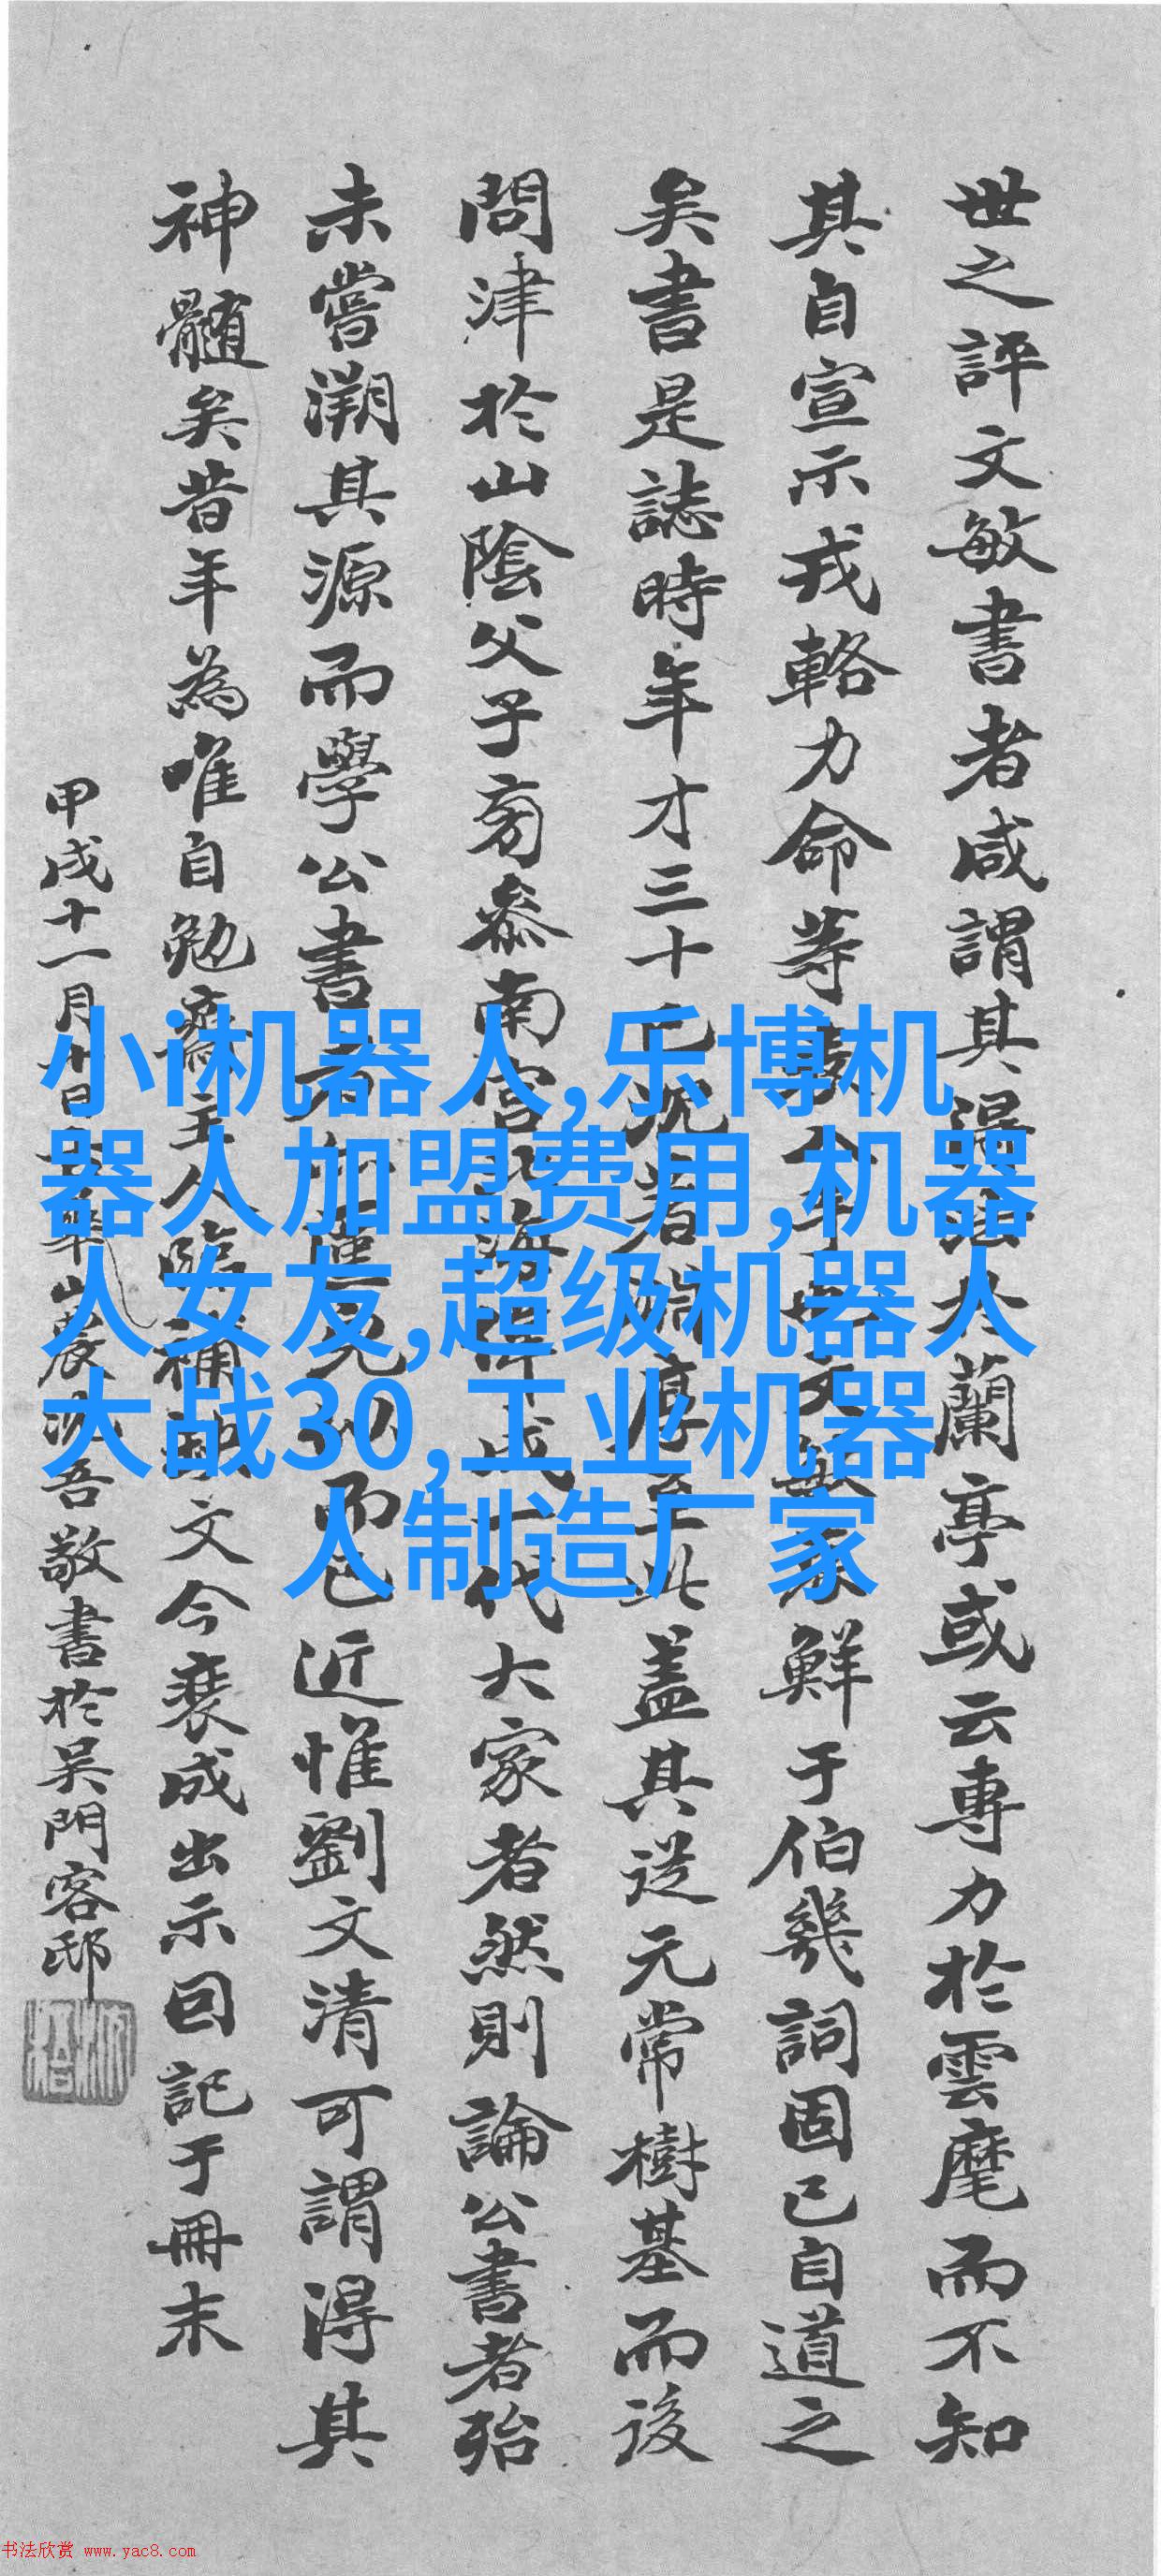 世之評文敏書者咸謂其得法於蘭亭或云專力於雲麾而不知
其自宣示戎輅力命等
鮮于伯幾詞固已自道之
矣書是誌時年才三十
蓋其從元常樹基而後
問津於山陰父子
南宮
一代大家者然則論公書者殆
未嘗溯其源而學公書者
而已近惟劉文清可謂得其
神髓矣昔年為唯自勉齋主人臨補
文今裝成出示因記于冊末
甲戌十一月
山農
吾敬書於吳門客邸
小i机器人,乐博机
器人加盟费用,机器
人女友,超级机器人
大战30,工业机器
人制造厂家
书法欣赏 www.yac8.com